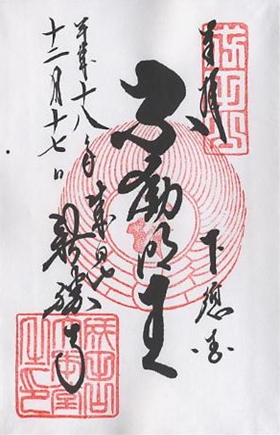 奉拝
下總國
不動明王
成田山
新勝寺
平成十八年
十二月十七日